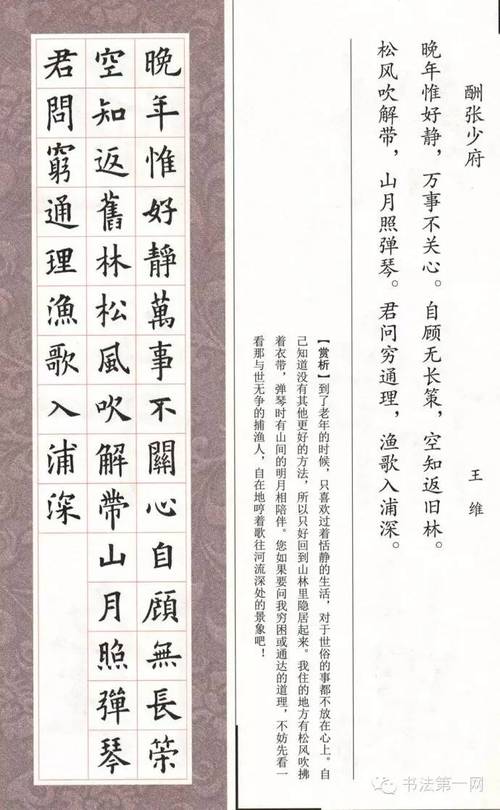 酬张少府
王维
晚年惟好静，万事不关心。自顾无长策，空知返旧林。
松风吹解带，山月照弹琴。君问穷通理，渔歌入浦深。
【赏析】到了老年的时候，只喜欢过着恬静的生活，对于世俗的事都不放在心上。自
己知道没有其他更好的方法，所以只好回到山林里隐居起来。我住的地方有松风吹拂
着衣带，弹琴时有山间的明月相陪伴。您如果要问我穷困或通达的道理，不妨先看一
看那与世无争的捕渔人，自在地哼着歌往河流深处的景象吧！
晚年惟好靜萬事不關心自顧無長策
空知返舊林松風吹解帶山月照彈琴
君問窮通理漁歌入浦深
书法第一网